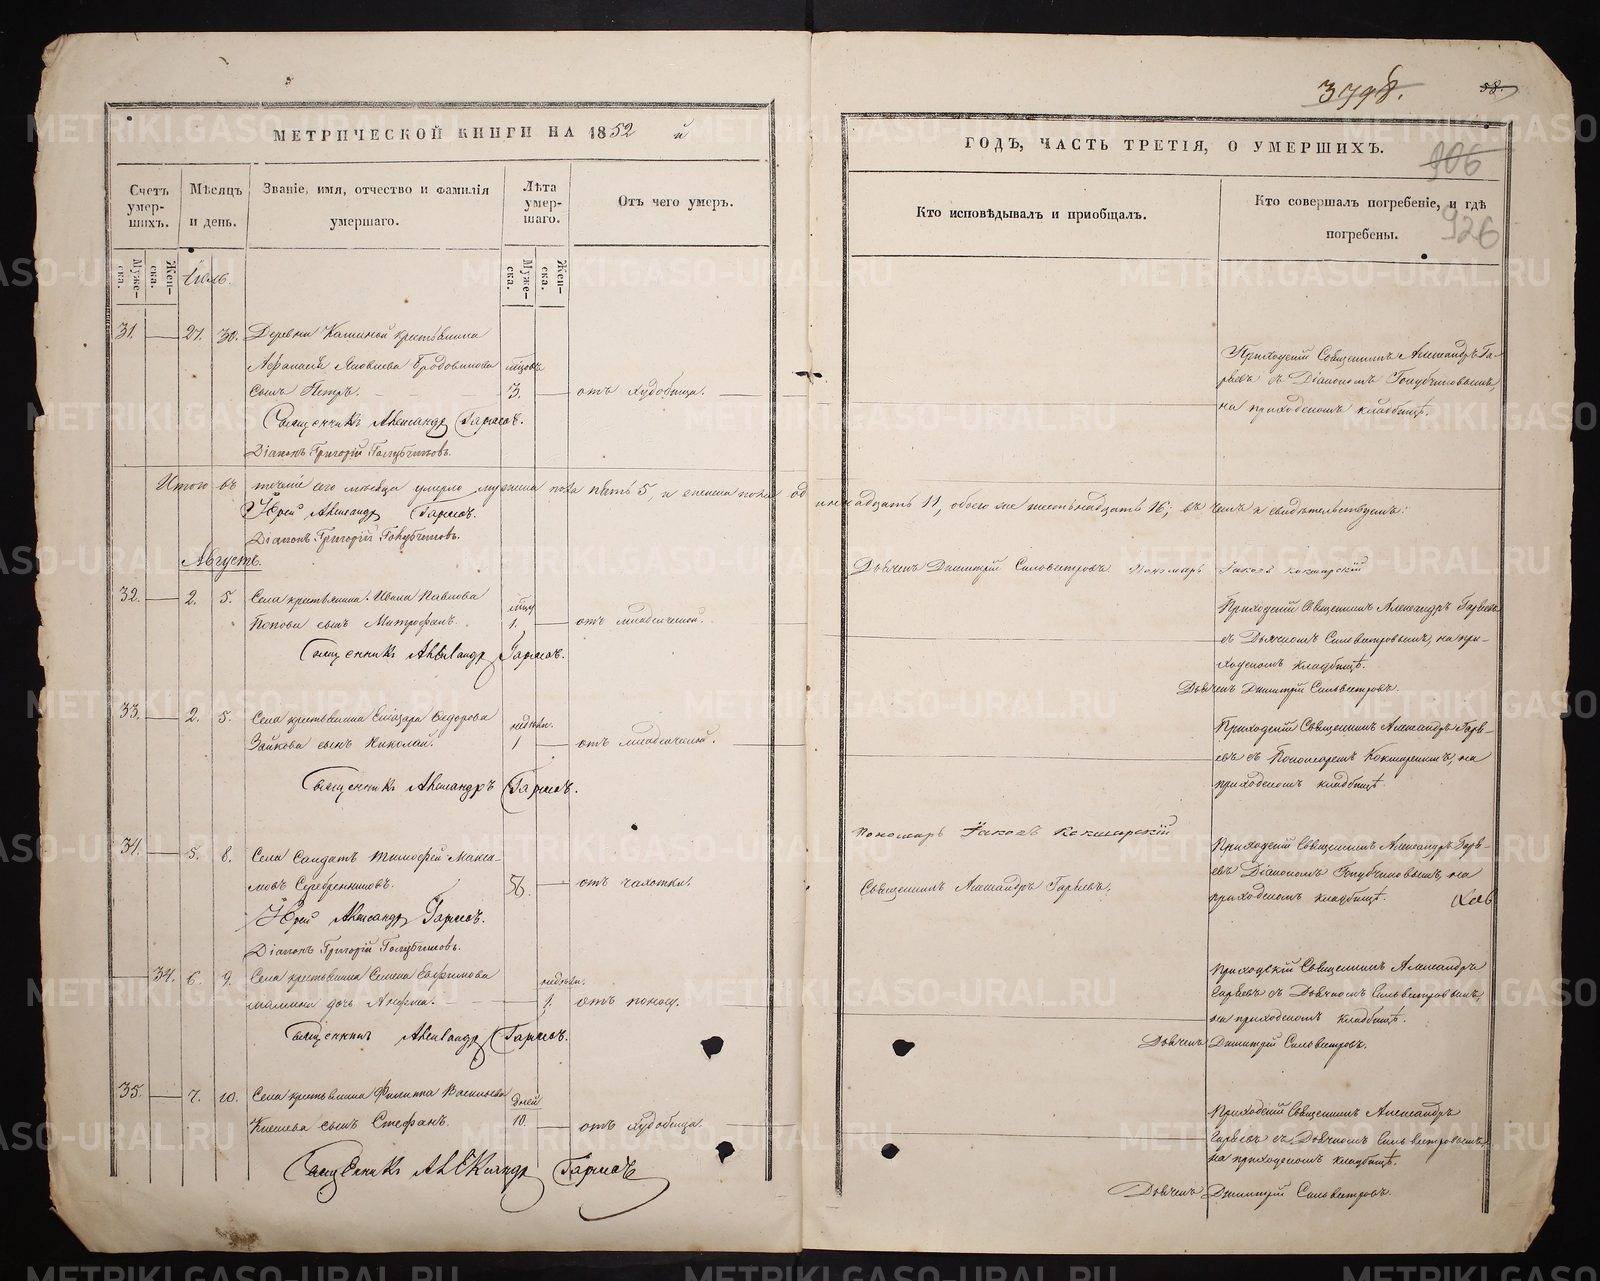 3798.
58.
МЕТРИЧЕСКОЙ КНИГИ НА 1852 й
ГОДЪ, ЧАСТЬ ТРЕТІЯ, О УМЕРШИХЪ.
906
926
Счетъ умер-шихъ.
Мѣсяцъ и день.
Званіе, имя, отчество и фамилія умершаго.
Лѣта умер-шаго.
Отъ чего умеръ.
Кто исповѣдывалъ и пріобщалъ.
Кто совершалъ погребеніе, и гдѣ погребены.
Муже-ска.
Жен-ска.
Муже-ска.
Жен-ска.
Іюль.
31. 27. 30. Деревни Кашиной крестьянина
Афанасія Яковлева Бродовикова мѣсяцовъ
сынъ Петръ. 3. отъ худобища.
Священникъ Александръ Гаряевъ.
Діаконъ Григорій Голубчиковъ.
Приходскій Священникъ Александръ Га-
ряевъ съ Діакономъ Голубчиковымъ,
на приходскомъ кладбищѣ.
Итого въ теченіе сего мѣсяца умерло мужеска пола пять 5, и женска пола одиннадцать 11, обоего же шестьнадцать 16; въ чемъ и свидѣтельствуемъ:
Іерей Александръ Гаряевъ.
Діаконъ Григорій Голубчиковъ.
Дьячекъ Димитрій Сильвестровъ. Пономарь Іаковъ Кокшарскій
Августъ.
32. 2. 5. Села крестьянина Ивана Павлова
Попова сынъ Митрофанъ. 1. отъ младенческой.
Священникъ Александръ Гаряевъ.
Приходскій Священникъ Александръ Гаряевъ
съ Дьячкомъ Сильвестровымъ, на при-
ходскомъ кладбищѣ.
Дьячекъ Димитрій Сильвестровъ.
33. 2. 5. Села крестьянина Елизара Федорова недѣли.
Зайкова сынъ Николай. 1 отъ младенческой.
Священникъ Александръ Гаряевъ.
Приходскій Священникъ Александръ Гаря-
евъ съ Пономаремъ Кокшарскимъ, на
приходскомъ кладбищѣ.
Пономарь Іаковъ Кокшарскій
34. 5. 8. Села Солдатъ Тимофей Макси-
мовъ Серебренниковъ. 56. отъ чахотки.
Іерей Александръ Гаряевъ.
Діаконъ Григорій Голубчиковъ.
Священникъ Александръ Гаряевъ.
Приходскій Священникъ Александръ Гаря-
евъ съ Діакономъ Голубчиковымъ, на
приходскомъ кладбищѣ.
34. 6. 9. Села крестьянина Семена Евфимова недѣли.
дочь Анфиса. 1. отъ поносу.
Священникъ Александръ Гаряевъ.
Приходскій Священникъ Александръ
Гаряевъ съ Дьячкомъ Сильвестровымъ,
на приходскомъ кладбищѣ.
Дьячекъ Димитрій Сильвестровъ.
35. 7. 10. Села крестьянина Филиппа Васильева дней
сынъ Стефанъ. 10. отъ худобища.
Священникъ Александръ Гаряевъ
Приходскій Священникъ Александръ
Гаряевъ съ Дьячкомъ Сильвестровымъ,
на приходскомъ кладбищѣ.
Дьячекъ Димитрій Сильвестровъ.
METRIKI.GASO-URAL.RU